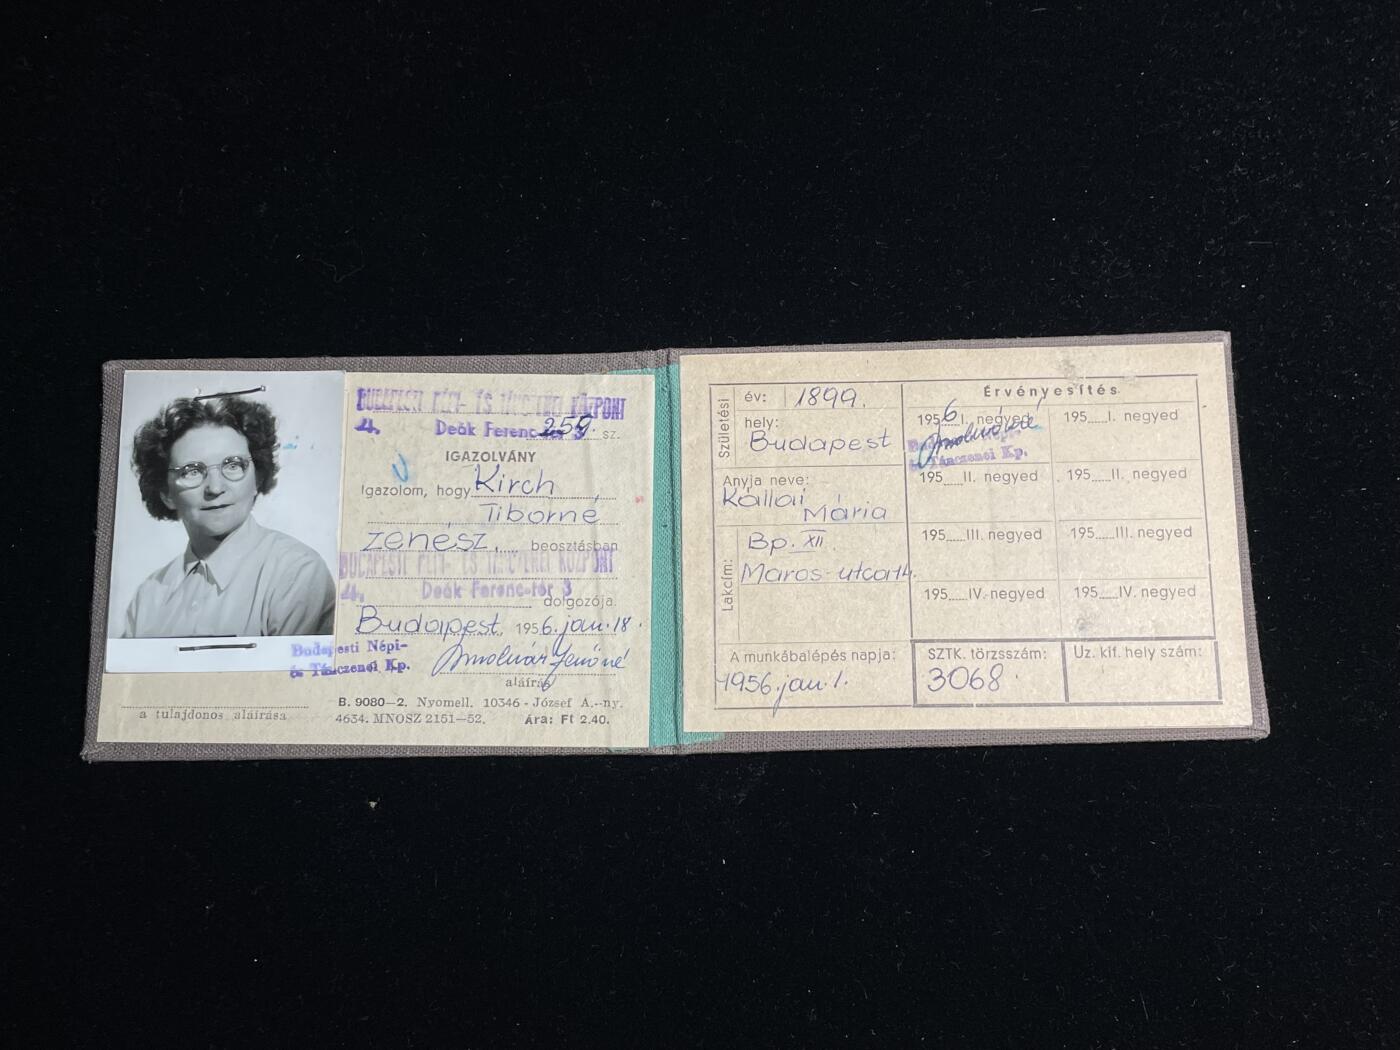 BUDAPESTI NÉPI- ÉS TÁNCZENEI KÖZPONT
Deák Ferenc-tér 3
259. sz.
IGAZOLVÁNY
Igazolom, hogy Kirch
Tiborné
zenész beosztásban
BUDAPESTI NÉPI- ÉS TÁNCZENEI KÖZPONT
Deák Ferenc-tér 3
dolgozója.
Budapest, 1956. jan. 18.
Budapesti Népi-
és Tánczenei Kp.
aláírás
a tulajdonos aláírása
B. 9080—2. Nyomell. 10346 - József A.-ny.
4634. MNOSZ 2151—52. Ára: Ft 2.40.
Születési
év: 1899.
hely:
Budapest
Anyja neve:
Kállai
Mária
Lakcím:
Bp. XII.
Maros-utca 14.
A munkábalépés napja:
1956. jan. 1.
Érvényesítés
1956 I. negyed
195 I. negyed
és Tánczenei Kp.
195 II. negyed
195 II. negyed
195 III. negyed
195 III. negyed
195 IV. negyed
195 IV. negyed
SZTK. törzsszám:
3068
Üz. kif. hely szám: